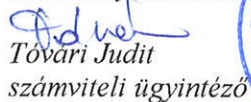 Tóvári Judit
számviteli ügyintéző